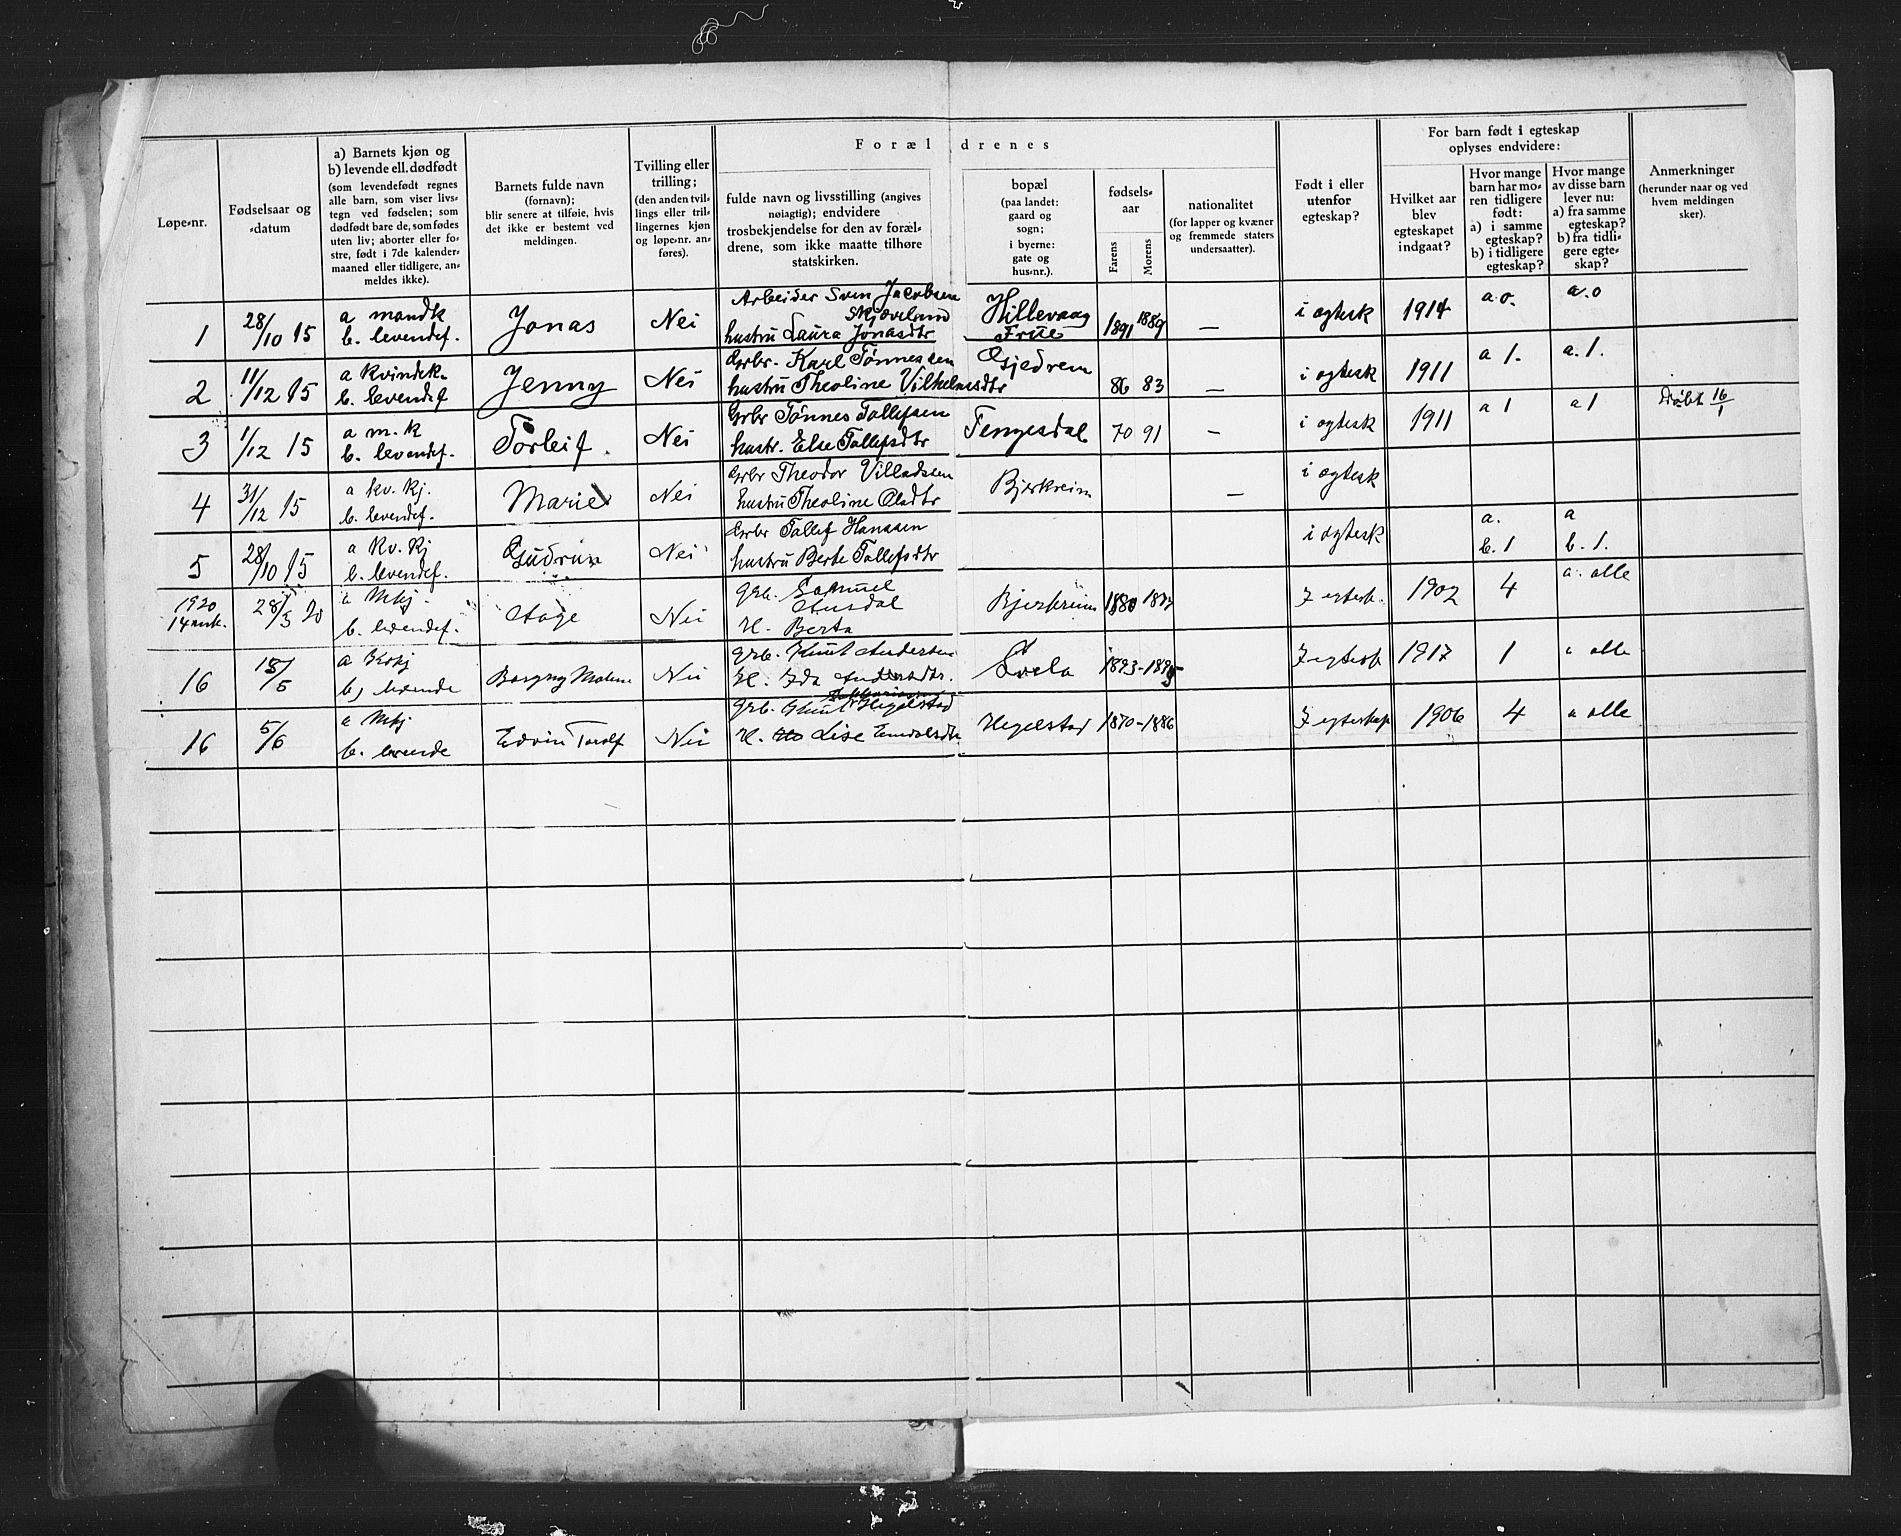 Foræl drenes
For barn født i egteskap
oplyses endvidere:
Løpe-nr.
Fødselsaar og
-datum
a) Barnets kjøn og
b) levende ell. dødfødt
(som levendefødt regnes
alle barn, som viser livs-
tegn ved fødselen; som
dødfødt bare de, som fødes
uten liv; aborter eller fo-
stre, født i 7de kalender-
maaned eller tidligere, an-
meldes ikke).
Barnets fulde navn
(fornavn);
blir senere at tilføie, hvis
det ikke er bestemt ved
meldingen.
Tvilling eller
trilling;
(den anden tvil-
lings eller tril-
lingernes kjøn
og løpe-nr. an-
føres).
fulde navn og livsstilling (angives
nøiagtig); endvidere
trosbekjendelse for den av foræl-
drene, som ikke maatte tilhøre
statskirken.
bopæl
(paa landet:
gaard og
sogn;
i byerne:
gate og
hus-nr.).
fødsels-
aar
Farens
Morens
nationalitet
(for lapper og kvæner
og fremmede staters
undersaatter).
Født i eller
utenfor
egteskap?
Hvilket aar
blev
egteskapet
indgaat?
Hvor mange
barn har mo-
ren tidligere
født:
a) i samme
egteskap?
b) i tidligere
egteskap?
Hvor mange
av disse barn
lever nu:
a) fra samme
egteskap?
b) fra tidli-
gere egte-
skap?
Anmerkninger
(herunder naar og ved
hvem meldingen
sker).
1 28/10 15 a mandk b. levendef. Jonas Nei Arbeider Sven Jacobsen Skjæveland hustru Laura Jonasdtr Hillevaag Frue 1891 1889 — i egtesk 1914 a.o. a.o
2 11/12 15 a kvindek. b. levendef Jenny Nei Grbr. Karl Tønnessen hustru Theoline Vilhelmsdtr Gjedrem 86 83 — i egtesk 1911 a 1. a. 1.
3 1/12 15 a m. k b. levendef. Torleif. Nei Grbr Tønnes Tollefsen hustr. Else Tollefsdtr Tengesdal 70 91 — i egtesk 1911 a 1 a 1 Døbt 16/1
4 31/12 15 a kv. kj. b. levendef. Marie Nei Grbr Theodor Villadsen hustru Theoline Olsdtr Bjerkreim — i egtesk
5 28/10 15 a kv. kj b. levendef. Gudrun Nei Grbr Tollef Hanssen hustru Berte Tollefsdtr i egtesk a. b. 1 a b. 1.
1920 14 28/3 20 a Mkj. b. levendef. Aage Nei Grb. Samuel Ausdal H. Berta Bjerkreim 1880 I egtesk. 1902 4 a. alle
16 /5 a Kvkj b) levende Borgny Malene Nei Grb. Knut Andersen H. Ida Andersdtr. Svela 1893-1895 I egtesk 1917 1 a alle
16 5/6 a Mkj b. levende Edvin Torolf Nei Grb. Hegelstad H. Lise Hegelstad 1870-1886 I egteskap 1906 4 a alle